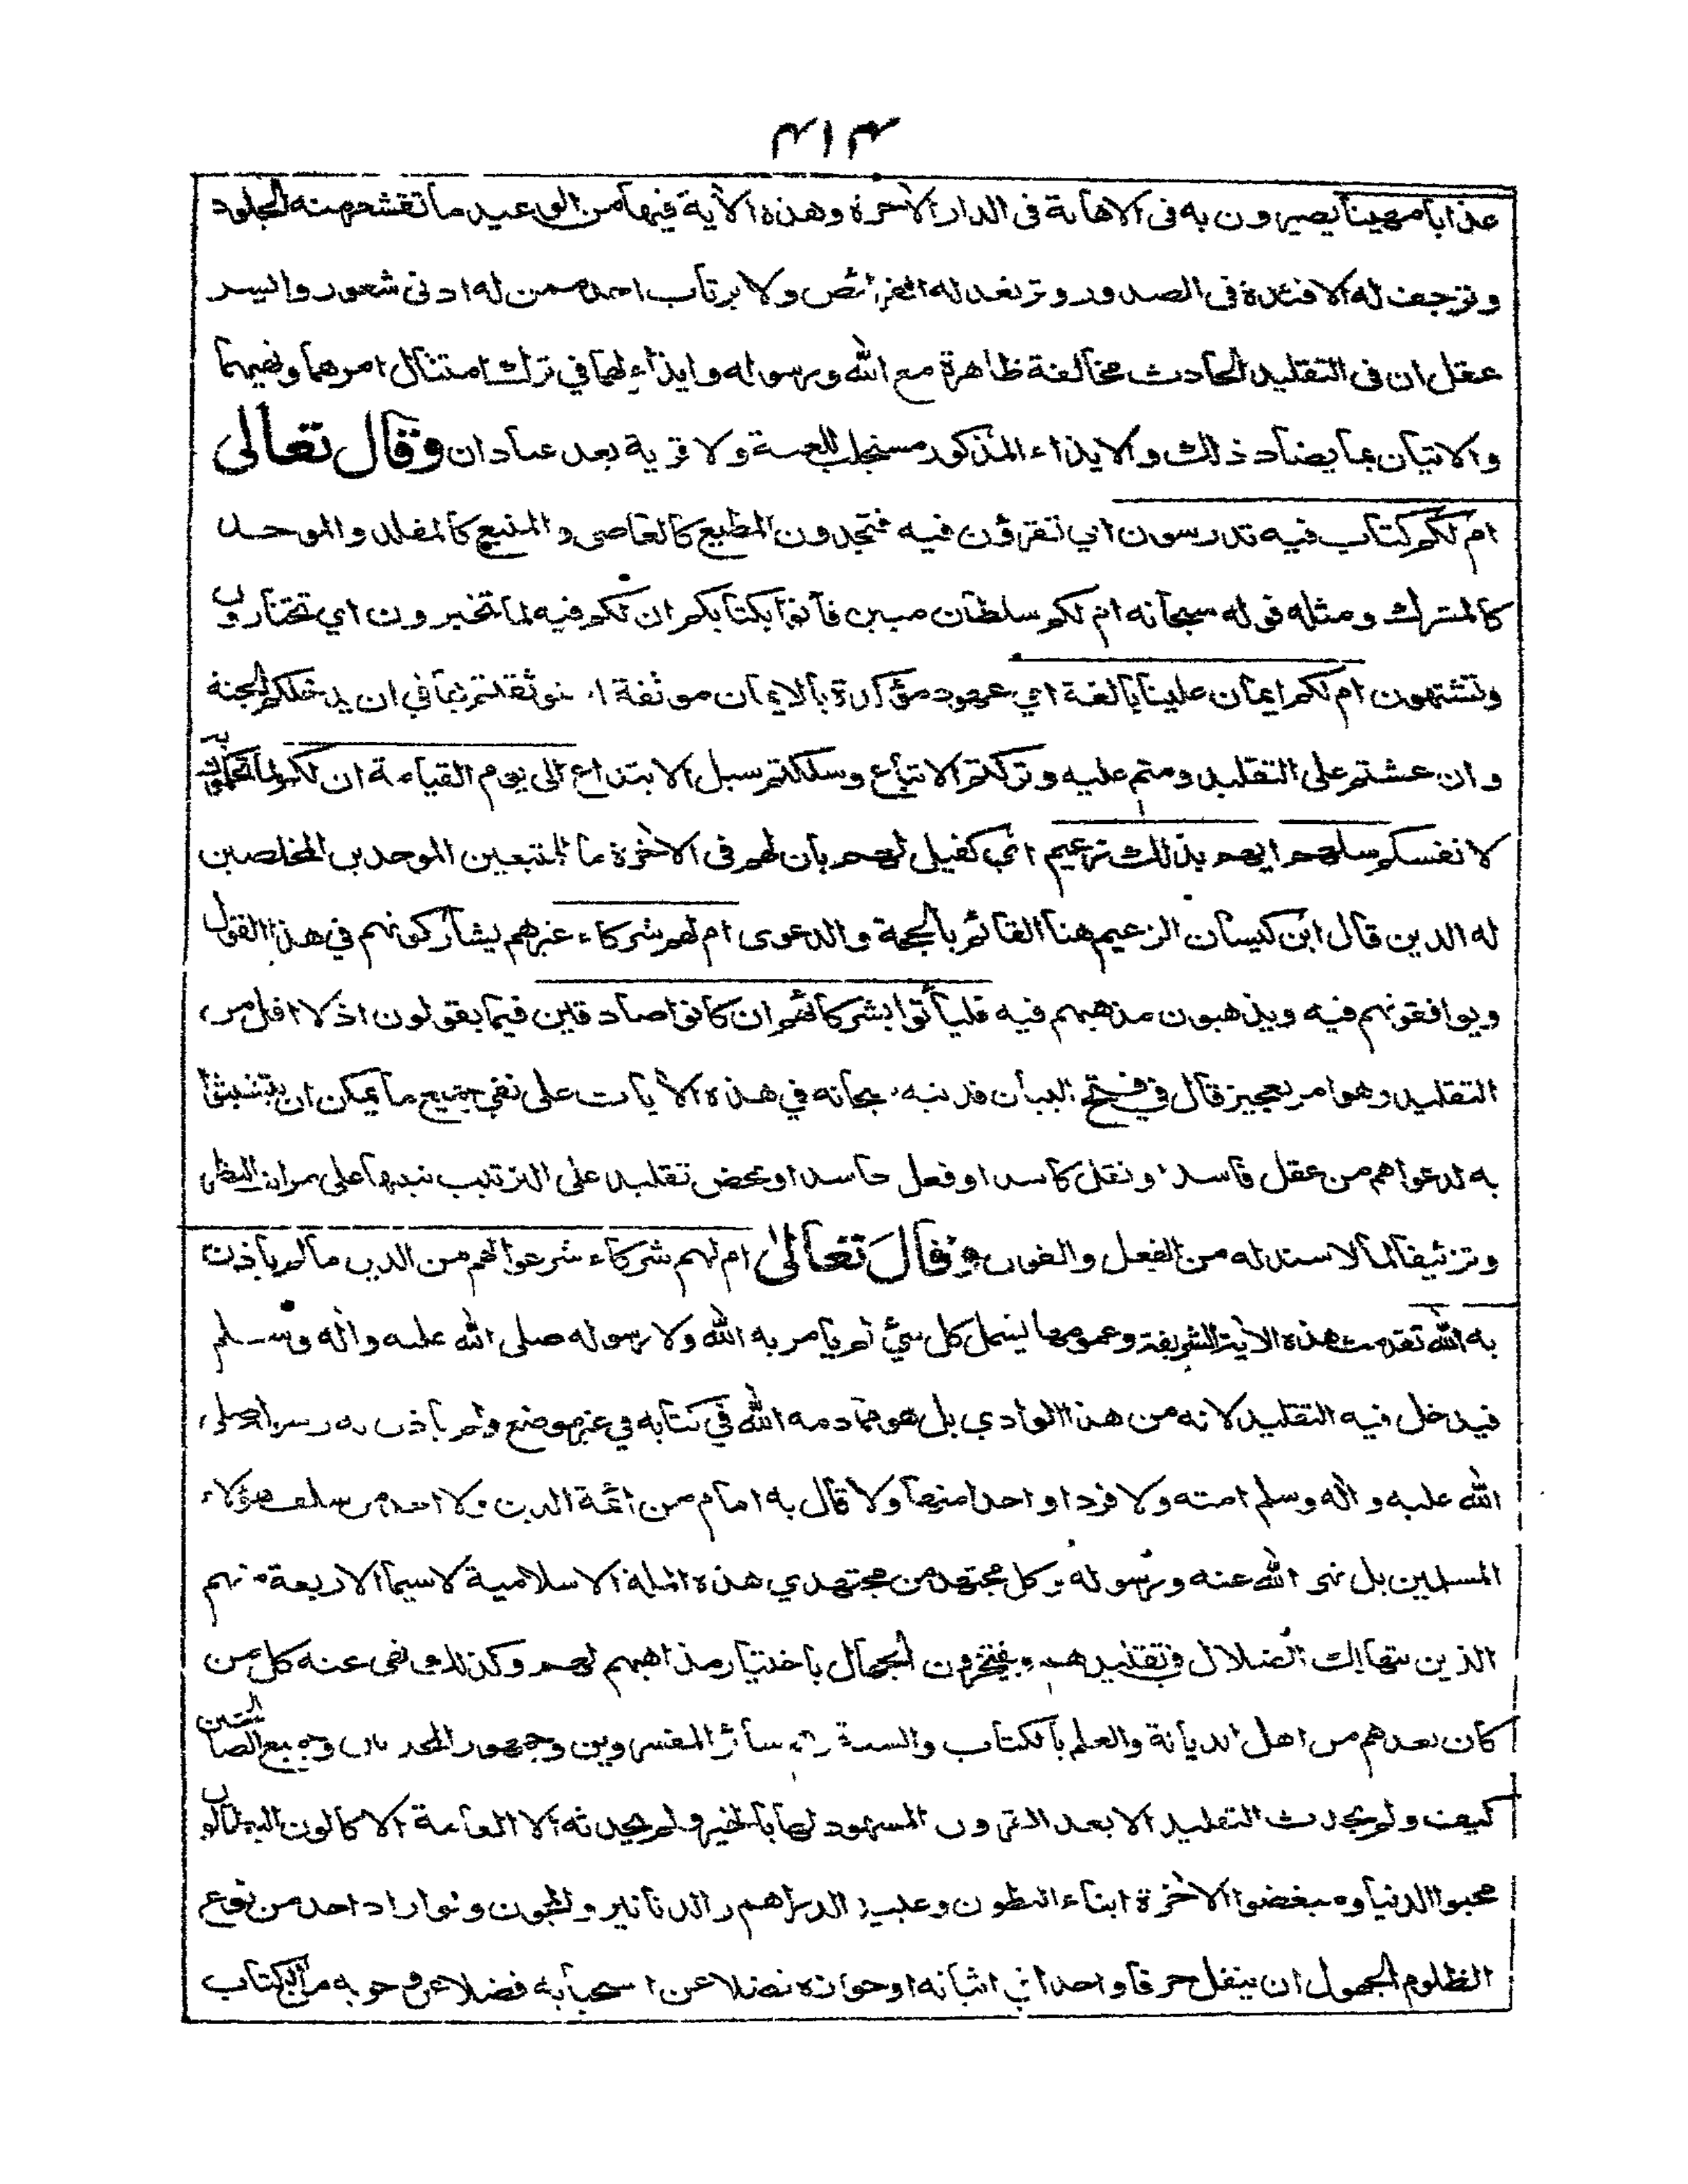 ٤١٣
عذابا مهينا يصيرون به فى الاهانة فى الدار الاخرة وهذه الاية فيها من الوعيد ما تقشعر منه الجلود
وترجف له الافئدة فى الصدور وترتعد له الفرائص ولا يرتاب احد ممن له ادنى شعور وايسر
عقل ان فى التقليد الحادث مخالفة ظاهرة مع الله ورسوله وايذاء لهما في ترك امتثال امرهما ونهيهما
والاتيان بما يضاد ذلك والايذاء المذكور مستجلب للعنة ولا قرية بعد عبادان وقال تعالى
ام لكم كتاب فيه تدرسون اي تقرؤن فيه فتجدون المطيع كالعاصى والمتبع كالمقلد والموحد
كالمشرك ومثله قوله سبحانه ام لكم سلطان مبين فأتوا بكتابكم ان لكم فيه لما تخيرون اي تختارون
وتشتهون ام لكم ايمان علينا بالغة اي عهود مؤكدة بالايمان موثقة توثقتم بها في ان يدخلكم الجنة
وان عشتم على التقليد ومتم عليه وتركتم الاتباع وسلكتم سبل الابتداع الى يوم القيامة ان لكم لما تحكمون
لانفسكم سلهم ايهم بذلك زعيم اي كفيل لهم بان لهم فى الاخرة ما للمتبعين الموحدين المخلصين
له الدين قال ابن كيسان الزعيم هنا القائم بالحجة والدعوى ام لهم شركاء غيرهم يشاركونهم في هذا القول
ويوافقونهم فيه ويذهبون مذهبهم فيه فليأتوا بشركائهم ان كانوا صادقين فيما يقولون اذ لا اقل من
التقليد وهو امر تعجيز قال في فتح البيان قد نبه سبحانه في هذه الايات على نفي جميع ما يمكن ان يتشبثوا
به لدعواهم من عقل فاسد او نقل كاسد او فعل حاسد او محض تقليد على الترتيب تنبيها على مراتب النظر
وتزئيفا لما لا سند له من الفعل والقول وقال تعالى ام لهم شركاء شرعوا لهم من الدين ما لم يأذن
به الله تقدمت هذه الاية الشريفة وعمومها يشمل كل شيئ لم يامر به الله ولا رسوله صلى الله عليه واله وسلم
فيدخل فيه التقليد لانه من هذا الوادي بل هو مما ذمه الله في كتابه في غير موضع ولم يأذن به رسوله صلى
الله عليه واله وسلم امته ولا فردا واحدا منها ولا قال به امام من ائمة الدين ولا احد من سلف هؤلاء
المسلمين بل نهى الله عنه ورسوله وكل مجتهد من مجتهدي هذه الملة الاسلامية لاسيما الاربعة منهم
الذين يتهالك الضلال في تقليدهم ويفتخرون الجهال باختيار مذاهبهم لهم وكذلك نهى عنه كل من
كان بعدهم من اهل الديانة والعلم بالكتاب والسنة من سائر المفسروين وجمهور المحدثين وجميع الصالحين
كيف ولم يحدث التقليد الا بعد القرون المشهود لها بالخير ولم يحدثه الا العامة الاكالون البطالون
محبوا الدنيا ومبغضوا الاخرة ابناء البطون وعبيد الدراهم والدنانير والمجون ولو اراد احد من نوع
الظلوم الجهول ان ينقل حرفا واحدا في اثباته او جوازه فضلا عن استحبابه فضلا عن وجوبه من الكتاب